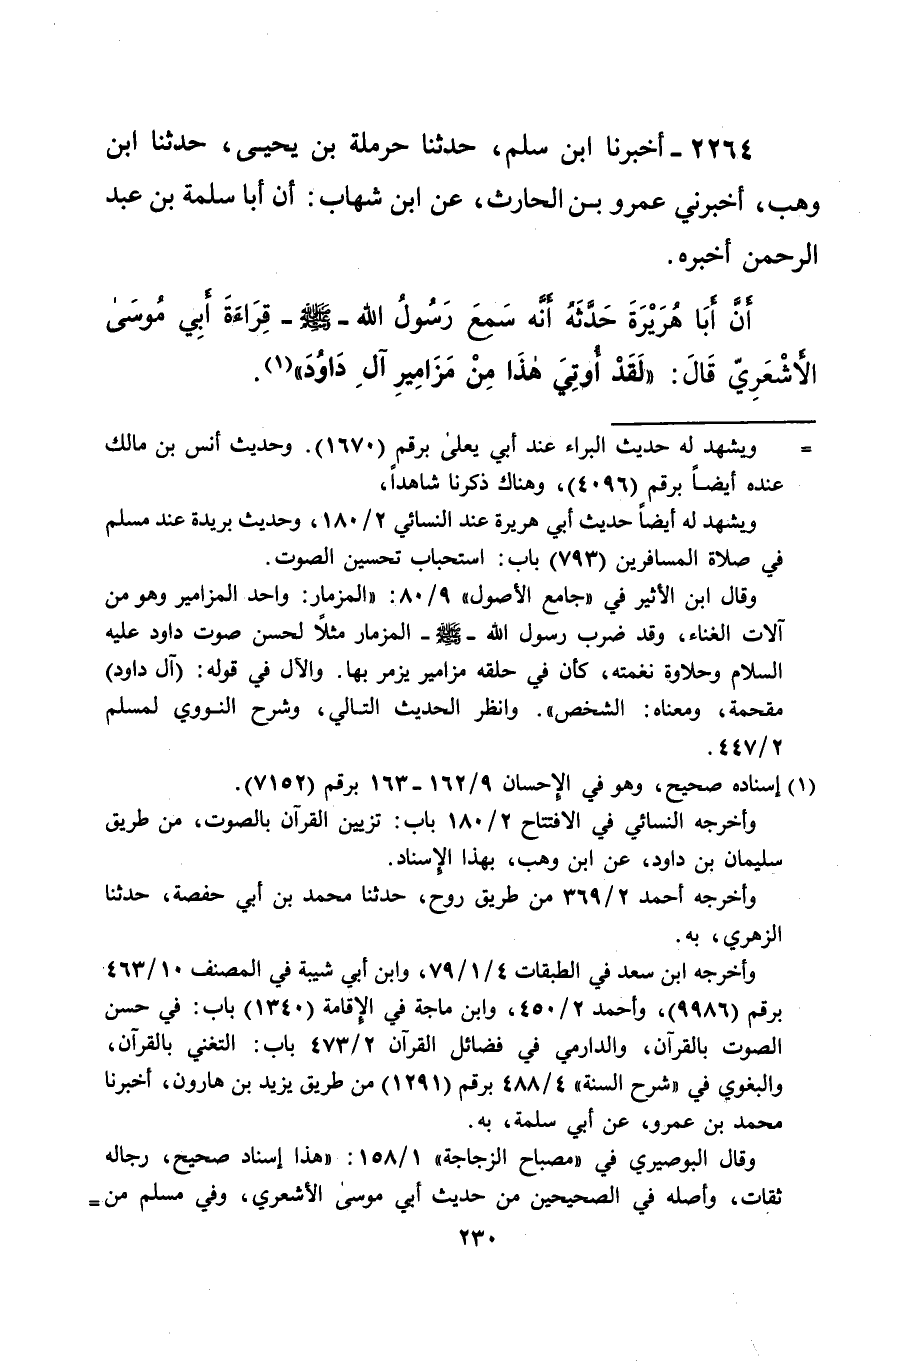 ٢٢٦٤ - أخبرنا ابن سلم، حدثنا حرملة بن يحيـى، حدثنا ابن
وهب، أخبرني عمرو بـن الحارث، عن ابن شهاب: أن أبا سلمة بن عبد
الرحمن أخبره.
أَنَّ أَبَا هُرَيْرَةَ حَدَّثَهُ أَنَّه سَمِعَ رَسُولُ الله - ﷺ - قِرَاءَةَ أَبِي مُوسَىٰ
الأَشْعَرِيّ قَالَ: «لَقَدْ أُوتِيَ هٰذَا مِنْ مَزَامِيرِ آلِ دَاوُدَ»(١).
= ويشهد له حديث البراء عند أبي يعلىٰ برقم (١٦٧٠). وحديث أنس بن مالك
عنده أيضـاً برقم (٤٠٩٦)، وهناك ذكرنا شاهداً،
ويشهد له أيضاً حديث أبي هريرة عند النسائي ١٨٠/٢، وحديث بريدة عند مسلم
في صلاة المسافرين (٧٩٣) باب: استحباب تحسين الصوت.
وقال ابن الأثير في «جامع الأصول» ٨٠/٩: «المزمار: واحد المزامير وهو من
آلات الغناء، وقد ضرب رسول الله - ﷺ - المزمار مثلاً لحسن صوت داود عليه
السلام وحلاوة نغمته، كأن في حلقه مزامير يزمر بها. والآل في قوله: (آل داود)
مقحمة، ومعناه: الشخص». وانظر الحديث التـالي، وشرح النـووي لمسلم
٤٤٧/٢.
(١) إسناده صحيح، وهو في الإحسان ١٦٢/٩ - ١٦٣ برقم (٧١٥٢).
وأخرجه النسائي في الافتتاح ١٨٠/٢ باب: تزيين القرآن بالصوت، من طريق
سليمان بن داود، عن ابن وهب، بهذا الإسناد.
وأخرجه أحمد ٣٦٩/٢ من طريق روح، حدثنا محمد بن أبي حفصة، حدثنا
الزهري، به.
وأخرجه ابن سعد في الطبقات ٧٩/١/٤، وابن أبي شيبة في المصنف ٤٦٣/١٠
برقم (٩٩٨٦)، وأحمد ٤٥٠/٢، وابن ماجة في الإقامة (١٣٤٠) باب: في حسن
الصوت بالقرآن، والدارمي في فضائل القرآن ٤٧٣/٢ باب: التغني بالقرآن،
والبغوي في «شرح السنة» ٤٨٨/٤ برقم (١٢٩١) من طريق يزيد بن هارون، أخبرنا
محمد بن عمرو، عن أبي سلمة، به.
وقال البوصيري في «مصباح الزجاجة» ١٥٨/١: «هذا إسناد صحيح، رجاله
ثقات، وأصله في الصحيحين من حديث أبي موسىٰ الأشعري، وفي مسلم من =
٢٣٠